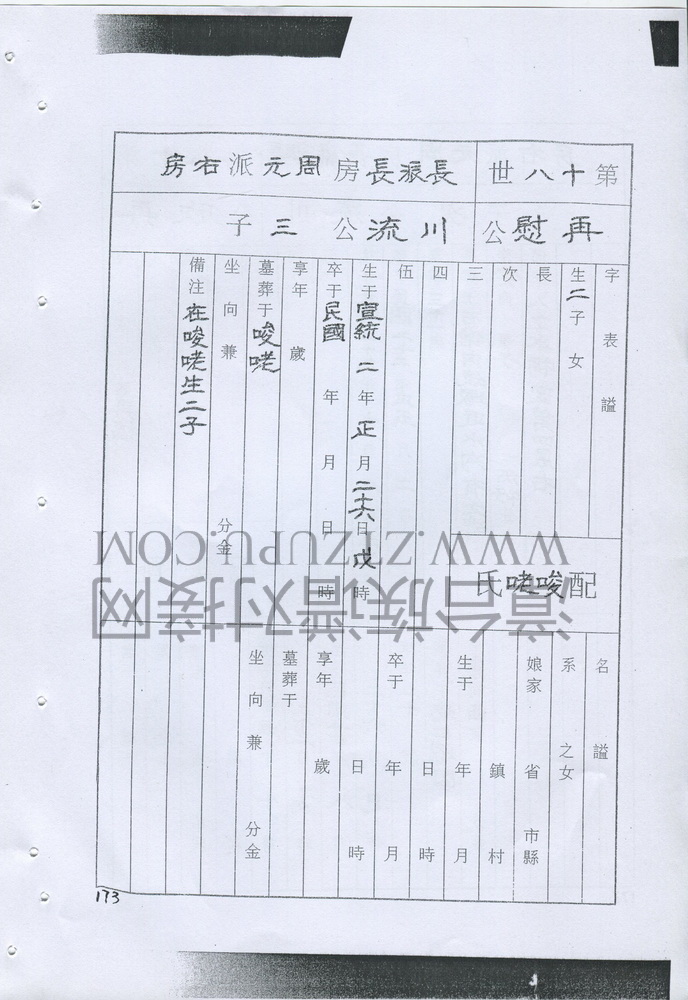 第十八世
長振長房周元派右房
再慰公
川流公三子
字表謚
生二子女
長
次
三
四
伍
生于宣統二年正月二十六日戌時
卒于民國年月日時
享年歲
墓葬于唆咾
坐向兼分金
備注在唆咾生二子
配唆咾氏
名謚
系之女
娘家省市縣
鎮村
生于年月
日時
卒于年月
日時
享年歲
墓葬于
坐向兼分金
173
WWW.ZTZUPU.COM
谱台族谱对接网